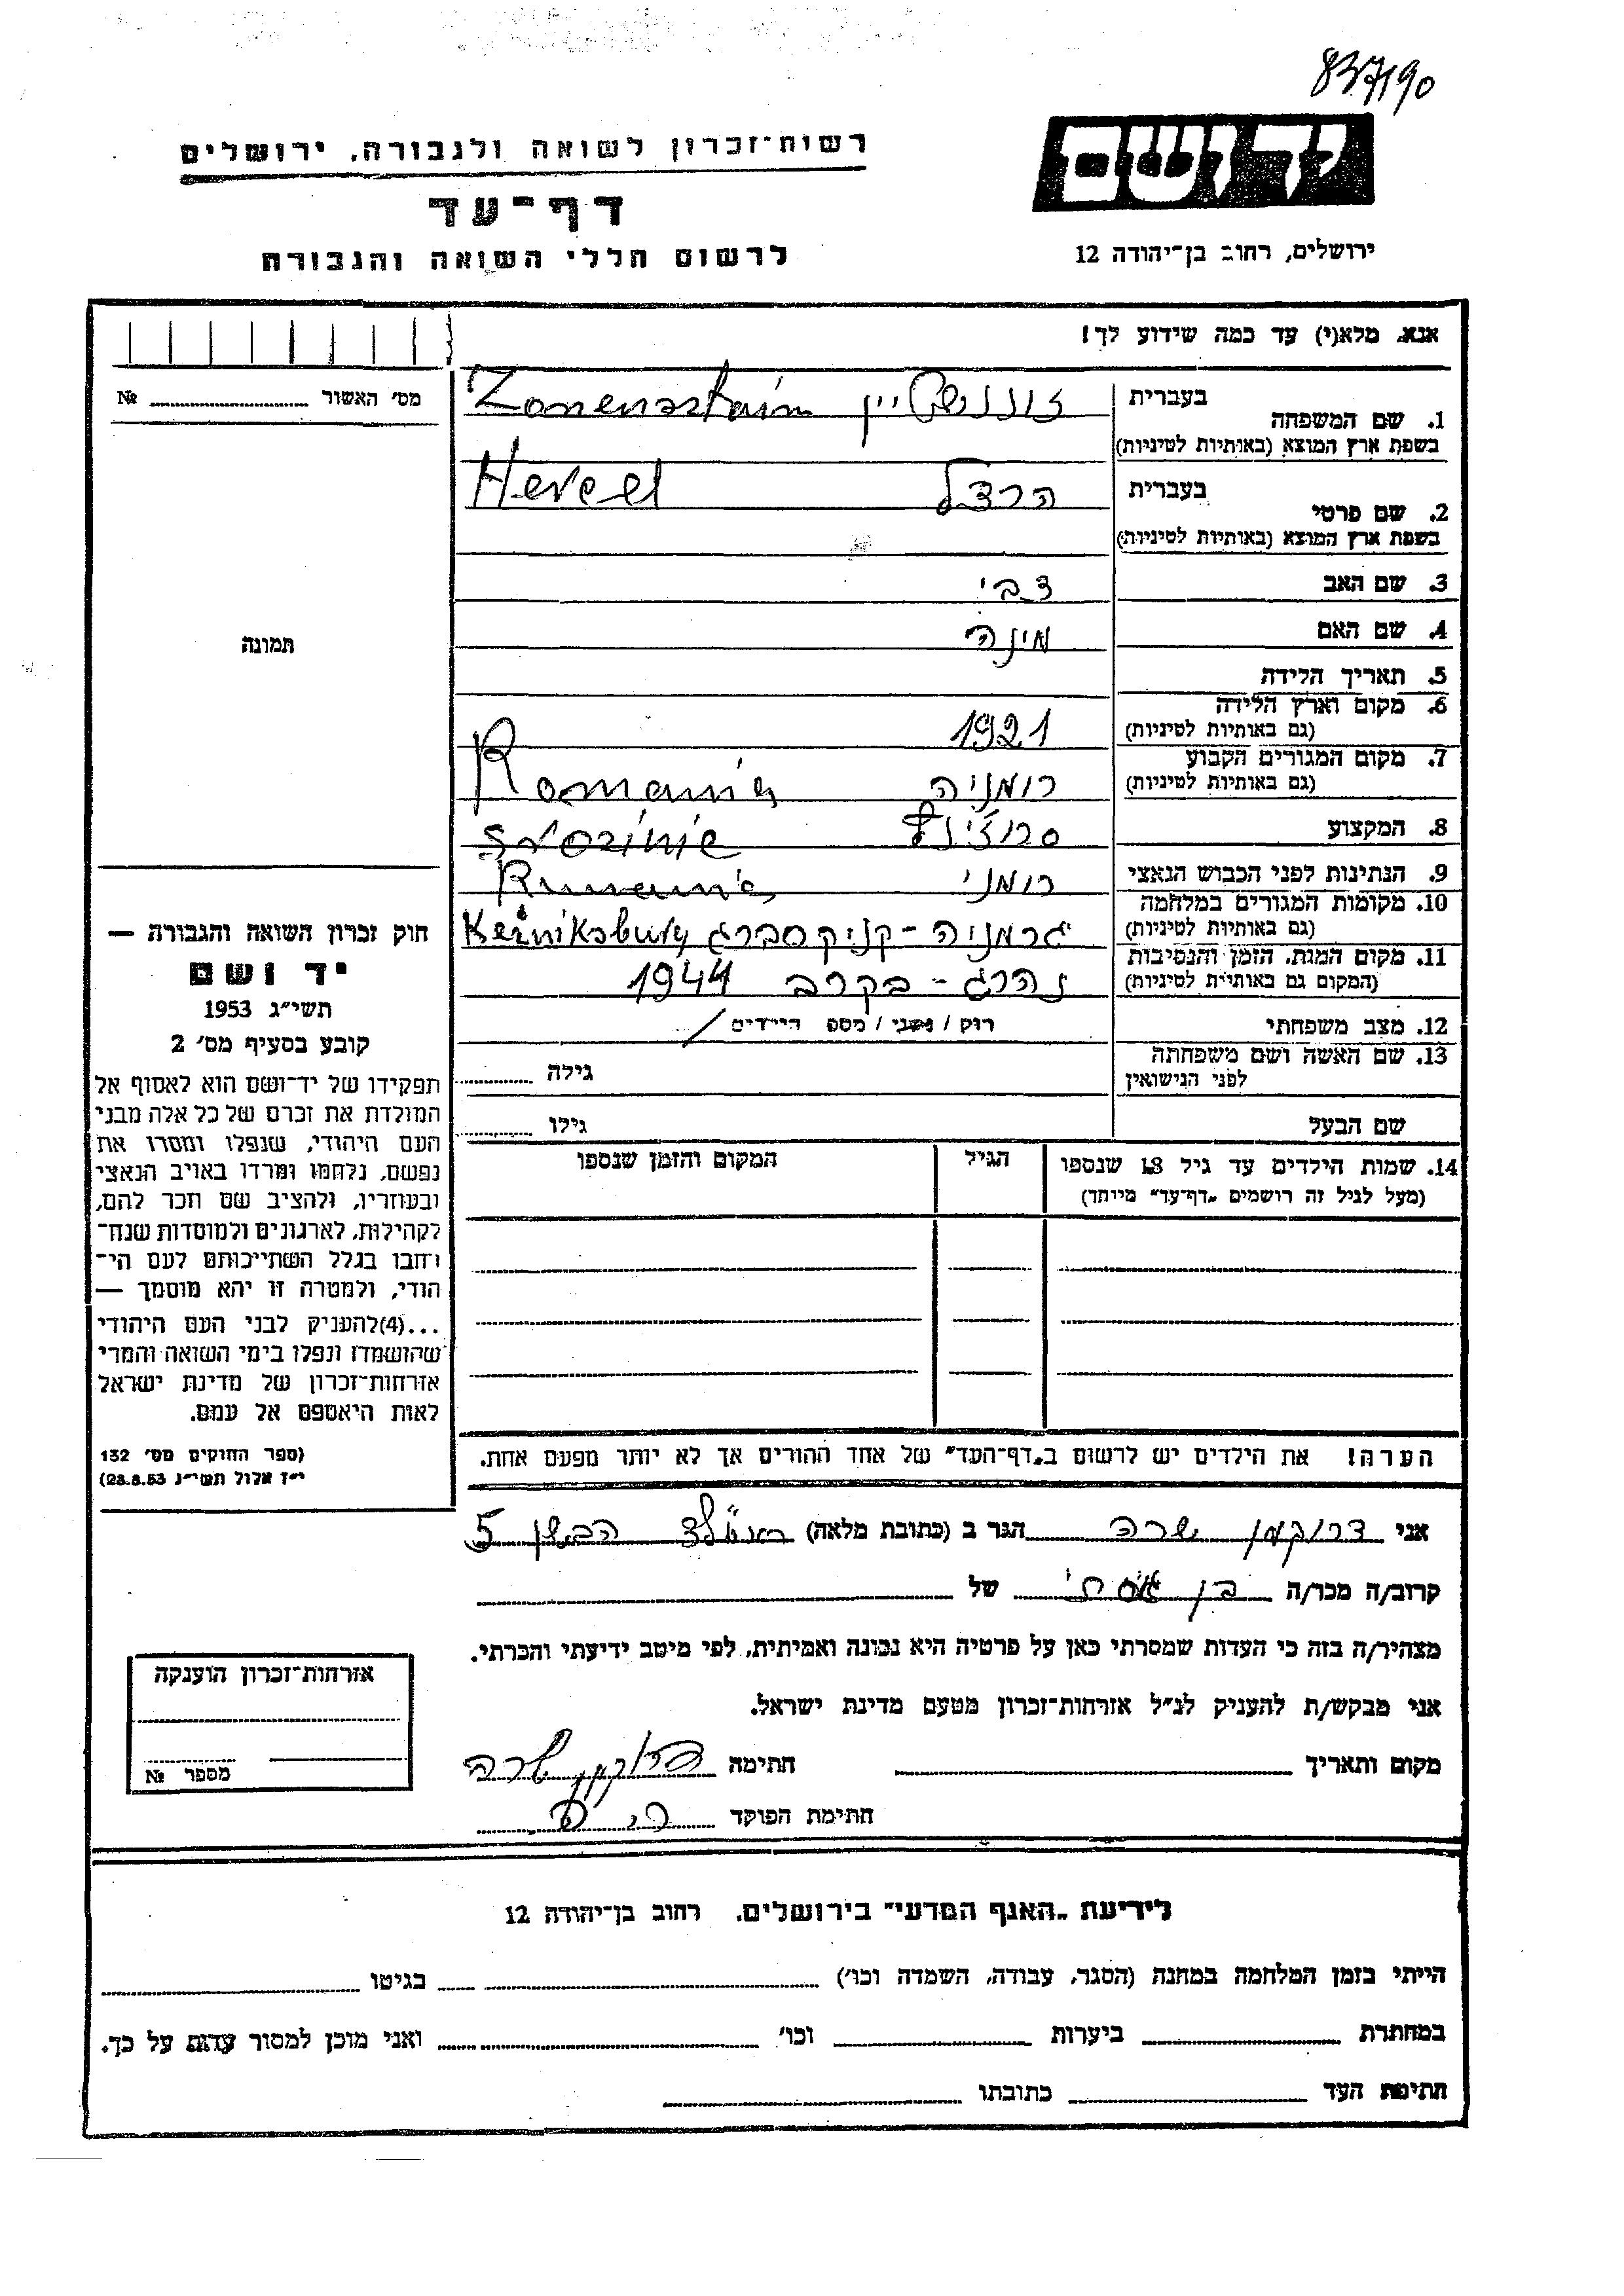 837190
יד ושם
רשות־זכרון לשואה ולגבורה, ירושלים
דף־עד
לרשום חללי השואה והגבורה
ירושלים, רחוב בן־יהודה 12
אנא, מלא(י) עד כמה שידוע לך!
מס׳ האשור № 
1. שם המשפחה בעברית זוננשטיין Zonensztain
בשפת ארץ המוצא (באותיות לטיניות)
2. שם פרטי בעברית הרצל Hercel
בשפת ארץ המוצא (באותיות לטיניות)
3. שם האב צבי
4. שם האם מינה
תמונה
5. תאריך הלידה
6. מקום וארץ הלידה 1921
(גם באותיות לטיניות)
7. מקום המגורים הקבוע רומניה Romania
(גם באותיות לטיניות)
8. המקצוע
9. הנתינות לפני הכבוש הנאצי רומני
10. מקומות המגורים במלחמה גרמניה - קניקסברג Keiniksburg
(גם באותיות לטיניות)
11. מקום המות, הזמן והנסיבות נהרג - בקרב 1944
(המקום גם באותיות לטיניות)
12. מצב משפחתי רוק / נשוי / מספ הילדים /
13. שם האשה ושם משפחתה גילה
לפני הנישואין
שם הבעל גילו
14. שמות הילדים עד גיל 18 שנספו הגיל המקום והזמן שנספו
(מעל לגיל זה רושמים „דף־עד״ מיוחד)
חוק זכרון השואה והגבורה —
יד ושם
תשי״ג 1953
קובע בסעיף מס׳ 2
תפקידו של יד־ושם הוא לאסוף אל
המולדת את זכרם של כל אלה מבני
העם היהודי, שנפלו ומסרו את
נפשם, נלחמו ומרדו באויב הנאצי
ובעוזריו, ולהציב שם וזכר להם,
לקהילות, לארגונים ולמוסדות שנח־
רבו בגלל השתייכותם לעם הי־
הודי, ולמטרה זו יהא מוסמך —
...(4)להעניק לבני העם היהודי
שהושמדו ונפלו בימי השואה והמרי
אזרחות־זכרון של מדינת ישראל
לאות היאספם אל עמם.
(ספר החוקים מס׳ 132
י״ז אלול תשי״ג 28.8.53)
הערה! את הילדים יש לרשום ב„דף־העד״ של אחד ההורים אך לא יותר מפעם אחת.
אני דרוקמן שרה הגר ב (כתובת מלאה) הבשן 5
קרוב/ה מכר/ה בן אחותי של
מצהיר/ה בזה כי העדות שמסרתי כאן על פרטיה היא נכונה ואמיתית, לפי מיטב ידיעתי והכרתי.
אני מבקש/ת להעניק לנ״ל אזרחות־זכרון מטעם מדינת ישראל.
מקום ותאריך חתימה דרוקמן שרה
חתימת הפוקד
אזרחות־זכרון הוענקה
מספר №
לידיעת „האגף המדעי״ בירושלים, רחוב בן־יהודה 12
הייתי בזמן המלחמה במחנה (הסגר, עבודה, השמדה וכו׳) בגיטו
במחתרת ביערות וכו׳ ואני מוכן למסור עדות על כך.
חתימת העד כתובתו